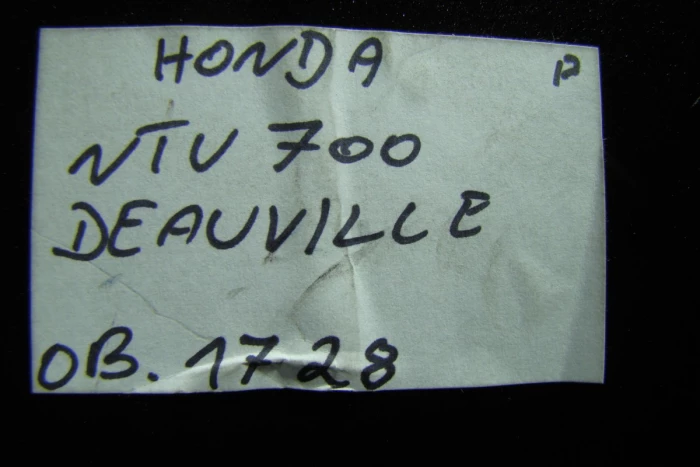 HONDA
P
NTV 700
DEAUVILLE
OB. 1728